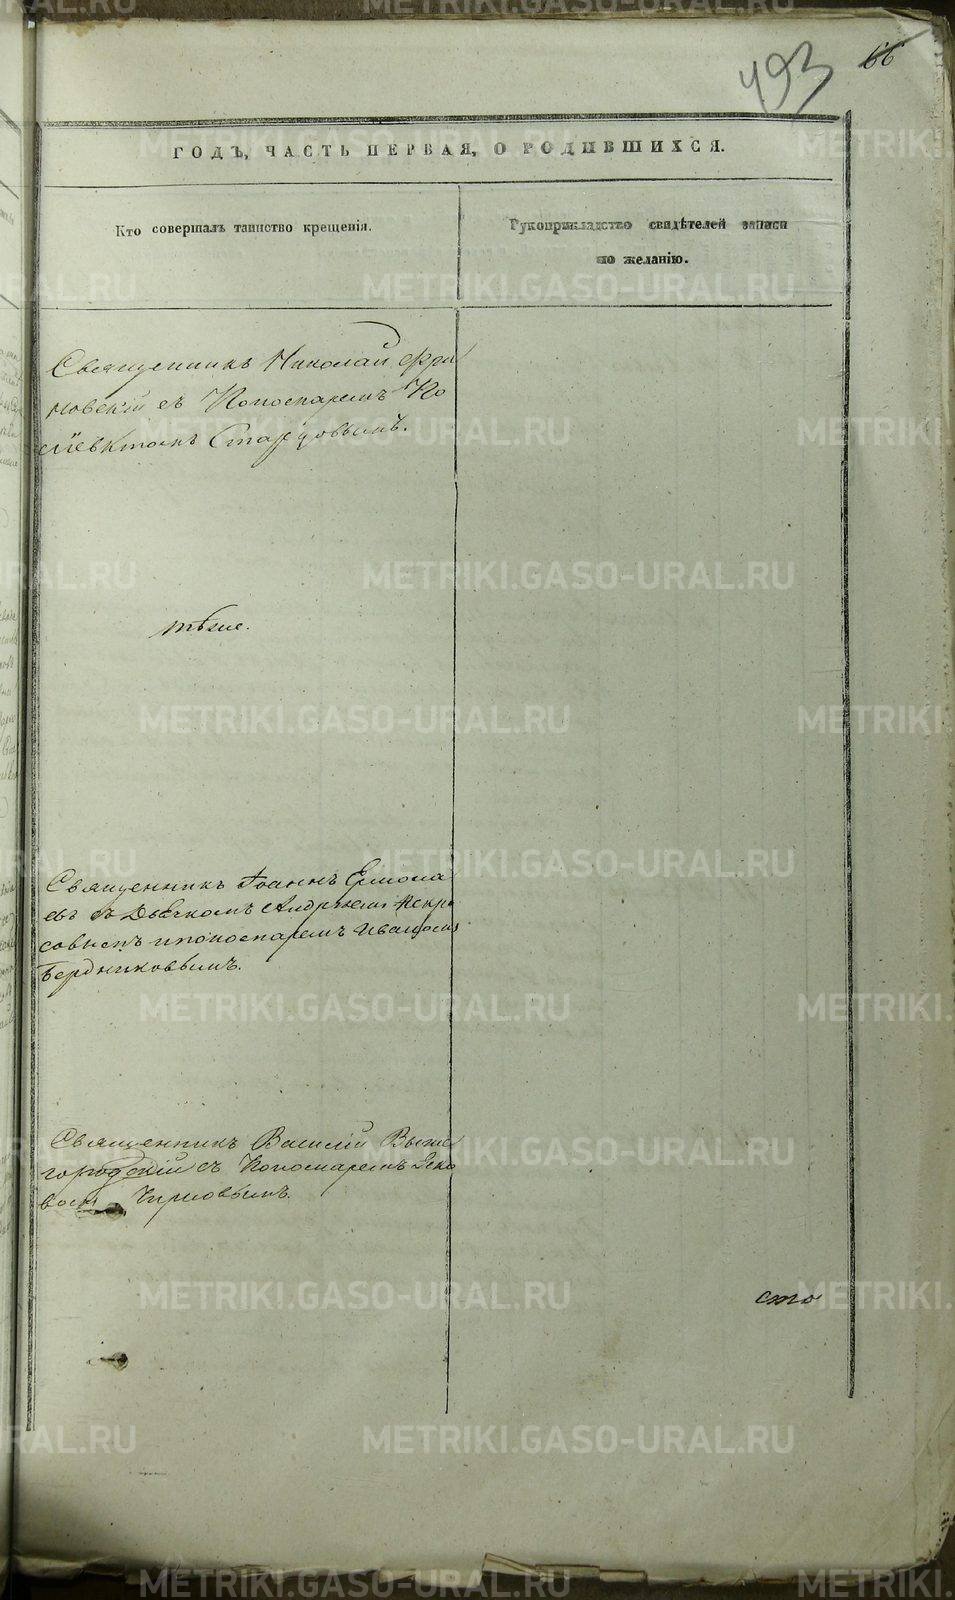 493 66
ГОДЪ, ЧАСТЬ ПЕРВАЯ, О РОДИВШИХСЯ.
Кто совершалъ таинство крещенія.
Рукоприкладство свидѣтелей записи
по желанію.
Священникъ Николай
новскій съ Пономаремъ По
ліевктомъ
тѣже.
Священникъ Іоаннъ Ермола
евъ съ Дьячкомъ Андреемъ Некра
совымъ и пономаремъ Иваномъ
Бердниковымъ.
Священникъ Василій Выше
городскій съ Пономаремъ Яко
вомъ Чирковымъ.
сто
METRIKI.GASO-URAL.RU